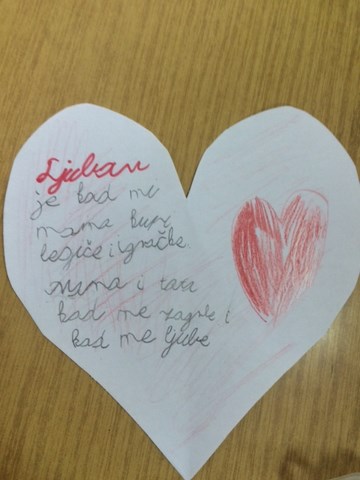 Ljubav
je kad mi
mama kupi
legiće i igračke.
Mama i tata
kad me zagrle i
kad me ljube